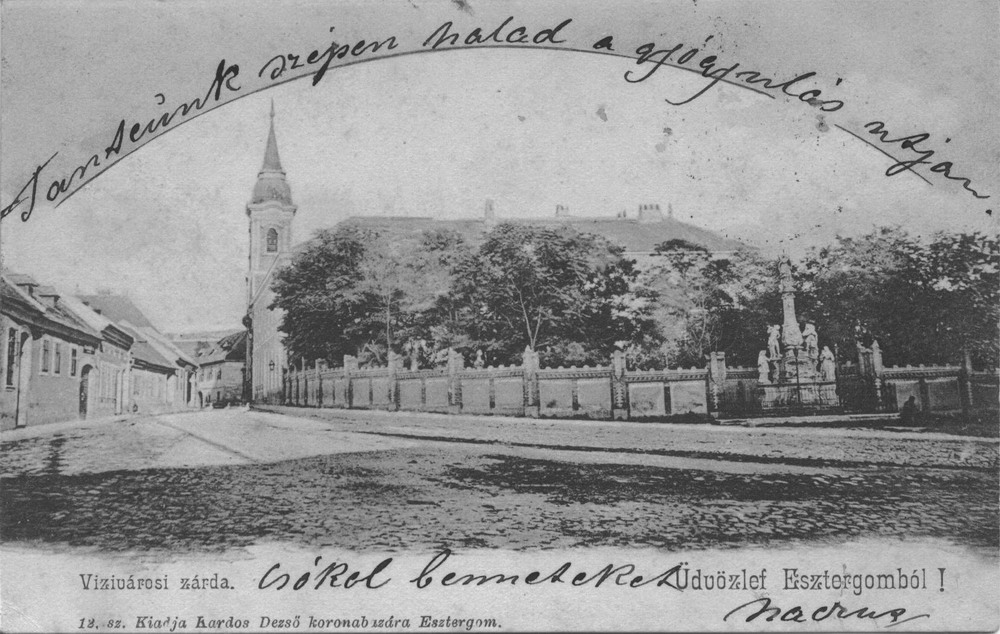 szépen halad a gyógyulás utján.
Vizivárosi zárda.
Csókol benneteket
Üdvözlef Eszfergomból!
12. sz. Kiadja Kardos Dezső koronabazára Esztergom.